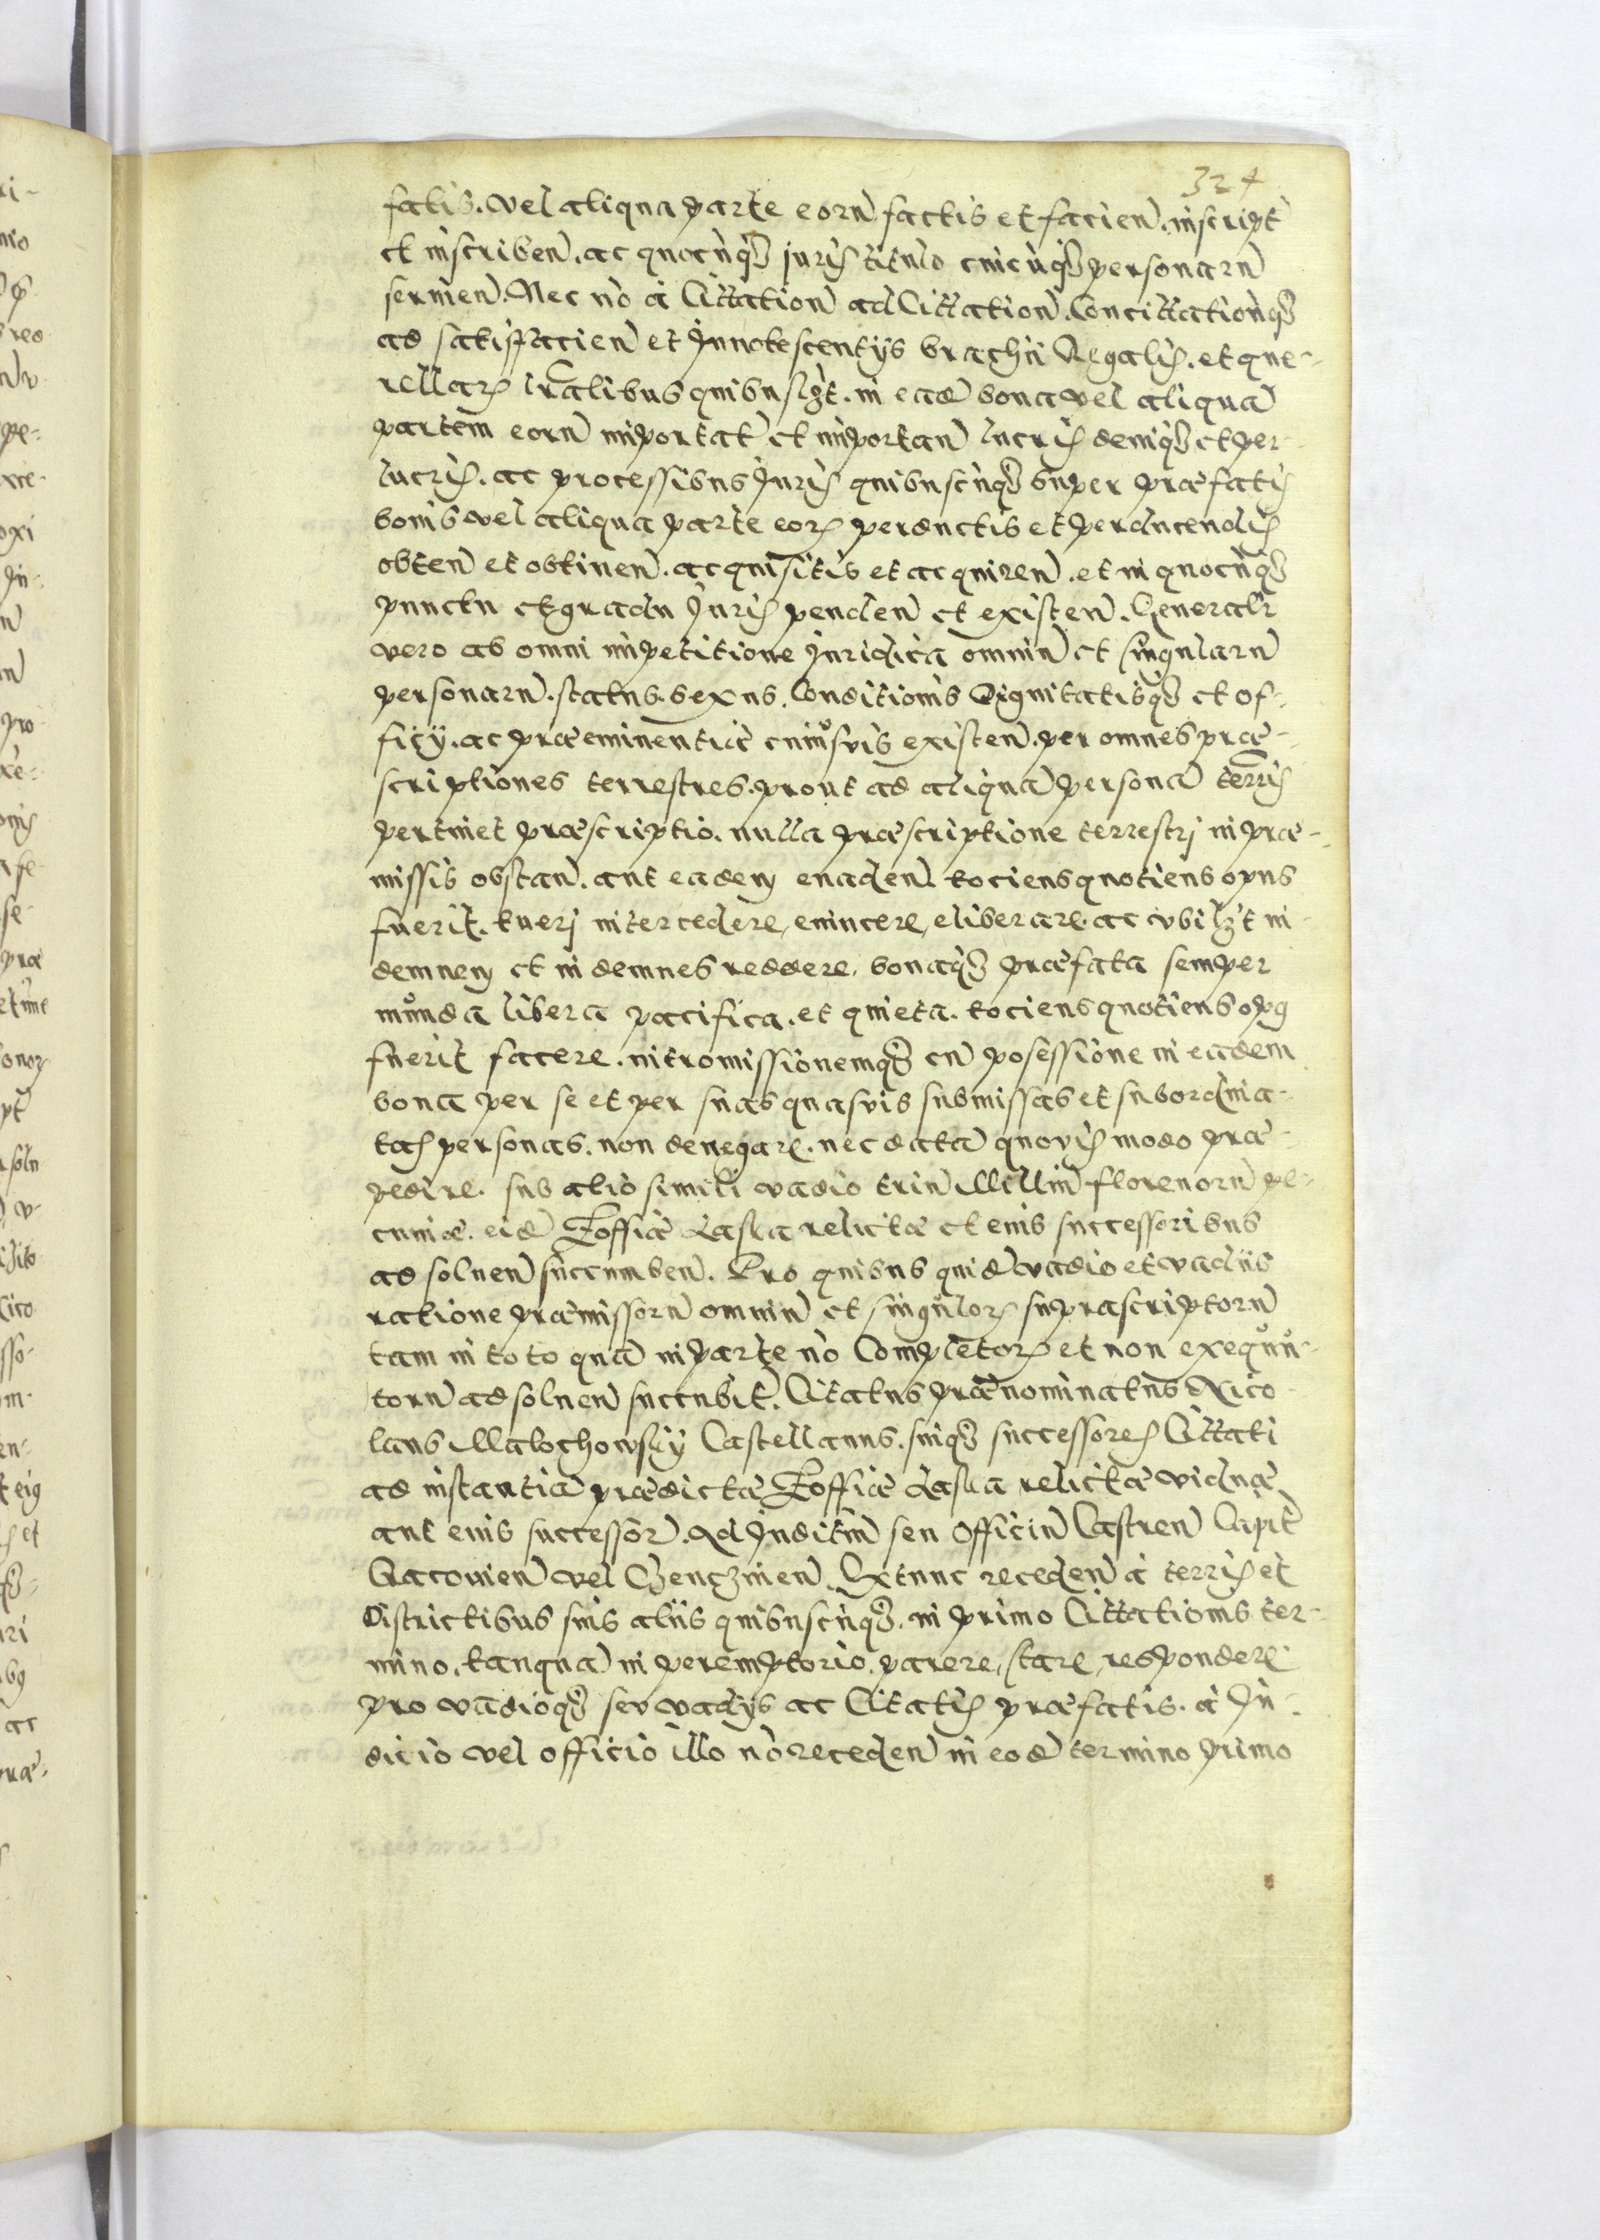 324
fatis. vel aliqua parte eorū factis et facień. inscript
et inscribeń. ac quocūq₃ juris titulo cuicūq₃ personarū
servień. Nec nō à Cittation̄ ad Cittation̄. Concittationūq₃
ad satisfacień et Innotescentijs brachii Regalis. et que-
rellarꝫ lr̄alibus quibuslꝫt. in eadē bona vel aliquā
partem eorū importat̄ et importań lucris deniq₃ et per-
lucris. ac processibus Juris quibuscūq₃ super præfatis
bonis vel aliqua parte eorꝫ perductis et perducendis
obteń et obtineń. acquisitis et acquireń. et in quocūq₃
punctu et gradu Juris pendeń et existeń. Generalr
vero ab omni impetitione Juridica omniū et singularū
personarū. status. sexus. Conditionis Dignitatisq₃ et of-
ficij. ac præeminentiæ cuiusvis existeń. per omnes præ-
scriptiones terrestres. prout ad aliquā personā terris
pertinet præscriptio. nulla præscriptione terrestrj in præ-
missis obstań. aut eadem euadeń. tociens quotiens opus
fuerit. tuerj intercedere, euincere, eliberare. ac vbilꝫt in-
demnem et indemnes reddere. bonaq₃ præfata semper
munda libera pacifica. et quieta. tociens quotiens opꝰ
fuerit facere. intromissionemq₃ cū posessione in eadem
bona per se et per suas quasvis submissas et subordina-
tas personas. non denegare. nec datā quovis modo præ-
pedire. sub alio simili vadio triū Milliū florenorū pe-
cuniæ. eidē Zoffiæ Laska relictæ et eius successoribus
ad solueń succumbeń. Pro quibus quidē vadio et vadiis
ratione præmissorū omniū et singulorꝫ suprascriptorū
tam in toto quā in parte nō Completorꝫ et non exequu-
torū ad solueń succubit̄. Citatus prænominatus Nico-
laus Malochowskij Castellanus. suiq₃ successores Cittati
ad instantiā prædictæ Zoffiæ Laska relictæ viduæ
aut eius successor̄. Ad Juditiū seu Officiū Castreń Capit̄
Cracouień vel Chencinień. Extunc recedeń à terris et
Districtibus suis aliis quibuscūq₃. in primo Cittationis ter-
mino. tanquā in peremptorio. parere, stare, respondere
pro vadioq₃ seu vadijs ac Citatis præfatis. à Ju-
dicio vel officio illo nō recedeń in eodē termino primo